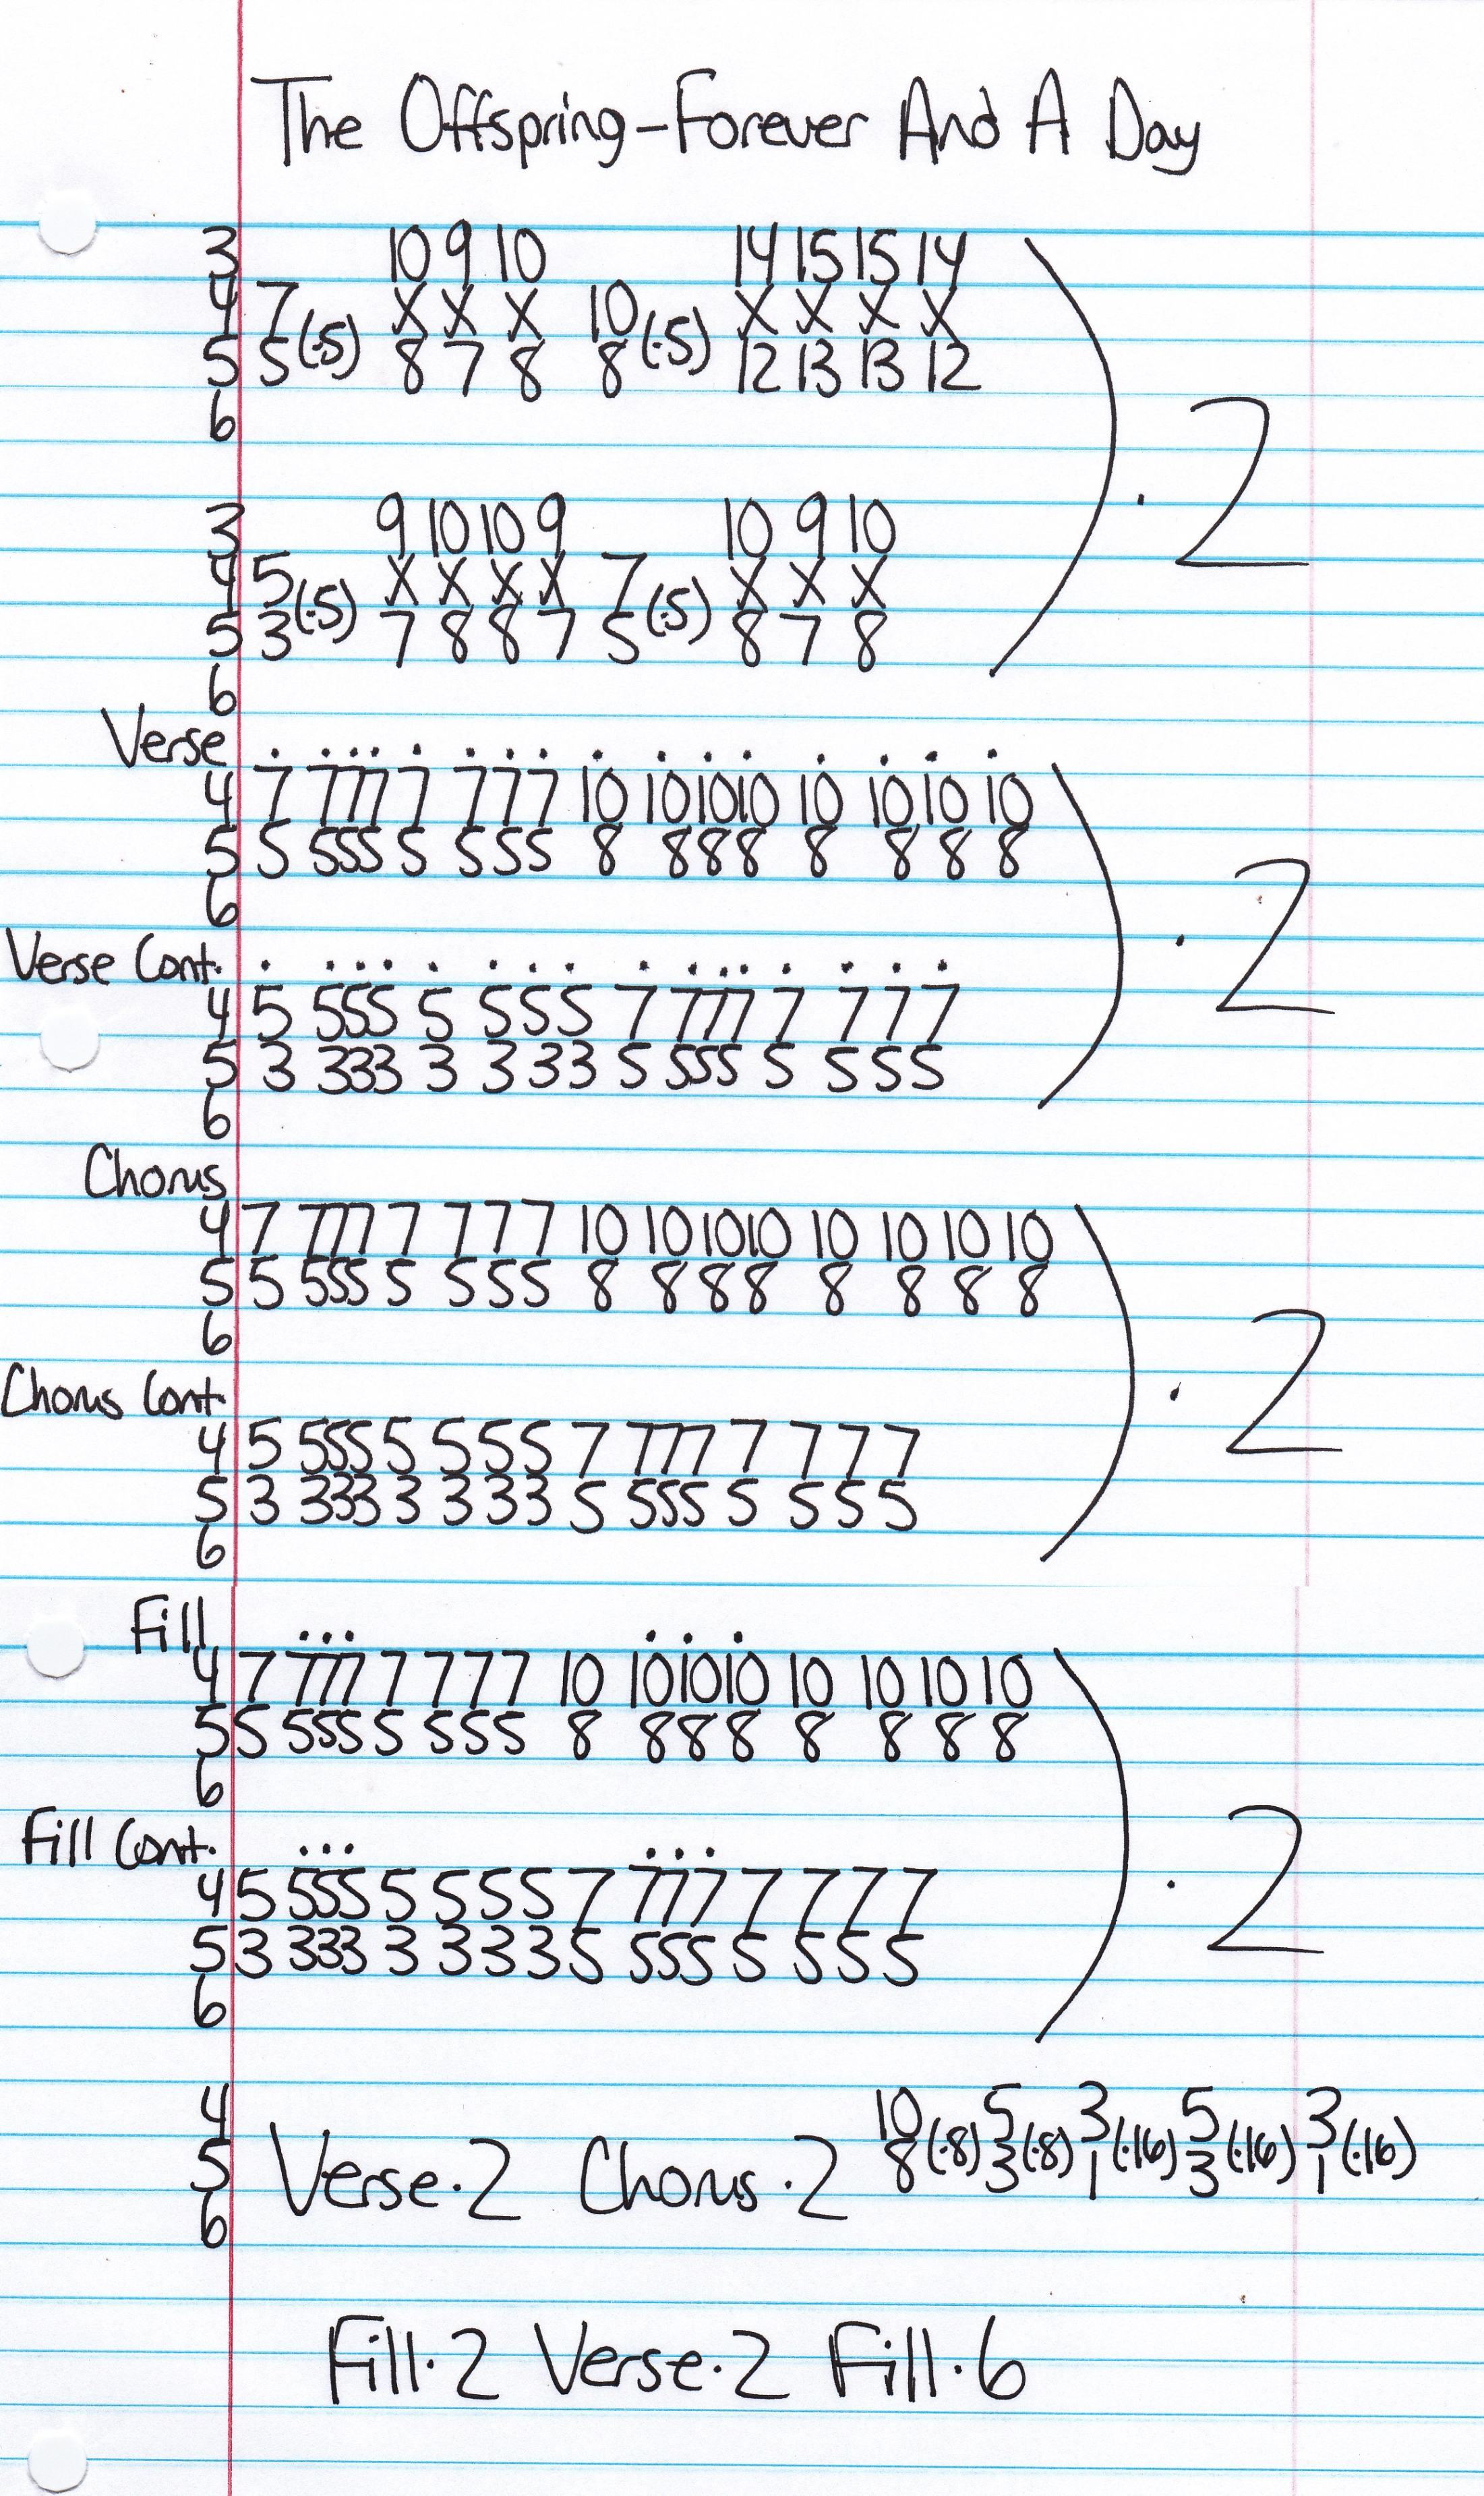 The Offspring-Forever And A Day
3 10 9 10 14 15 15 14
4 7 X X X 10 X X X X
5 5 (·5) 8 7 8 8 (·5) 12 13 13 12
6
3 9 10 10 9 10 9 10
4 5 X X X X 7 X X X
5 3 (·5) 7 8 8 7 5 (·5) 8 7 8
6
) · 2
Verse
4 7 777 7 7 7 7 10 10 10 10 10 10 10 10
5 5 555 5 5 5 5 8 8 8 8 8 8 8 8
6
Verse Cont.
4 5 555 5 5 5 5 7 777 7 7 7 7
5 3 333 3 3 3 3 5 555 5 5 5 5
6
) · 2
Chorus
4 7 777 7 7 7 7 10 10 10 10 10 10 10 10
5 5 555 5 5 5 5 8 8 8 8 8 8 8 8
6
Chorus Cont.
4 5 555 5 5 5 5 7 777 7 7 7 7
5 3 333 3 3 3 3 5 555 5 5 5 5
6
) · 2
Fill
4 7 777 7 7 7 7 10 10 10 10 10 10 10 10
5 5 555 5 5 5 5 8 8 8 8 8 8 8 8
6
Fill Cont.
4 5 555 5 5 5 5 7 777 7 7 7 7
5 3 333 3 3 3 3 5 555 5 5 5 5
6
) · 2
4 10 5 3 5 3
5 Verse·2 Chorus·2 8 (·8) 3 (·8) 1 (·16) 3 (·16) 1 (·16)
6
Fill·2 Verse·2 Fill·6